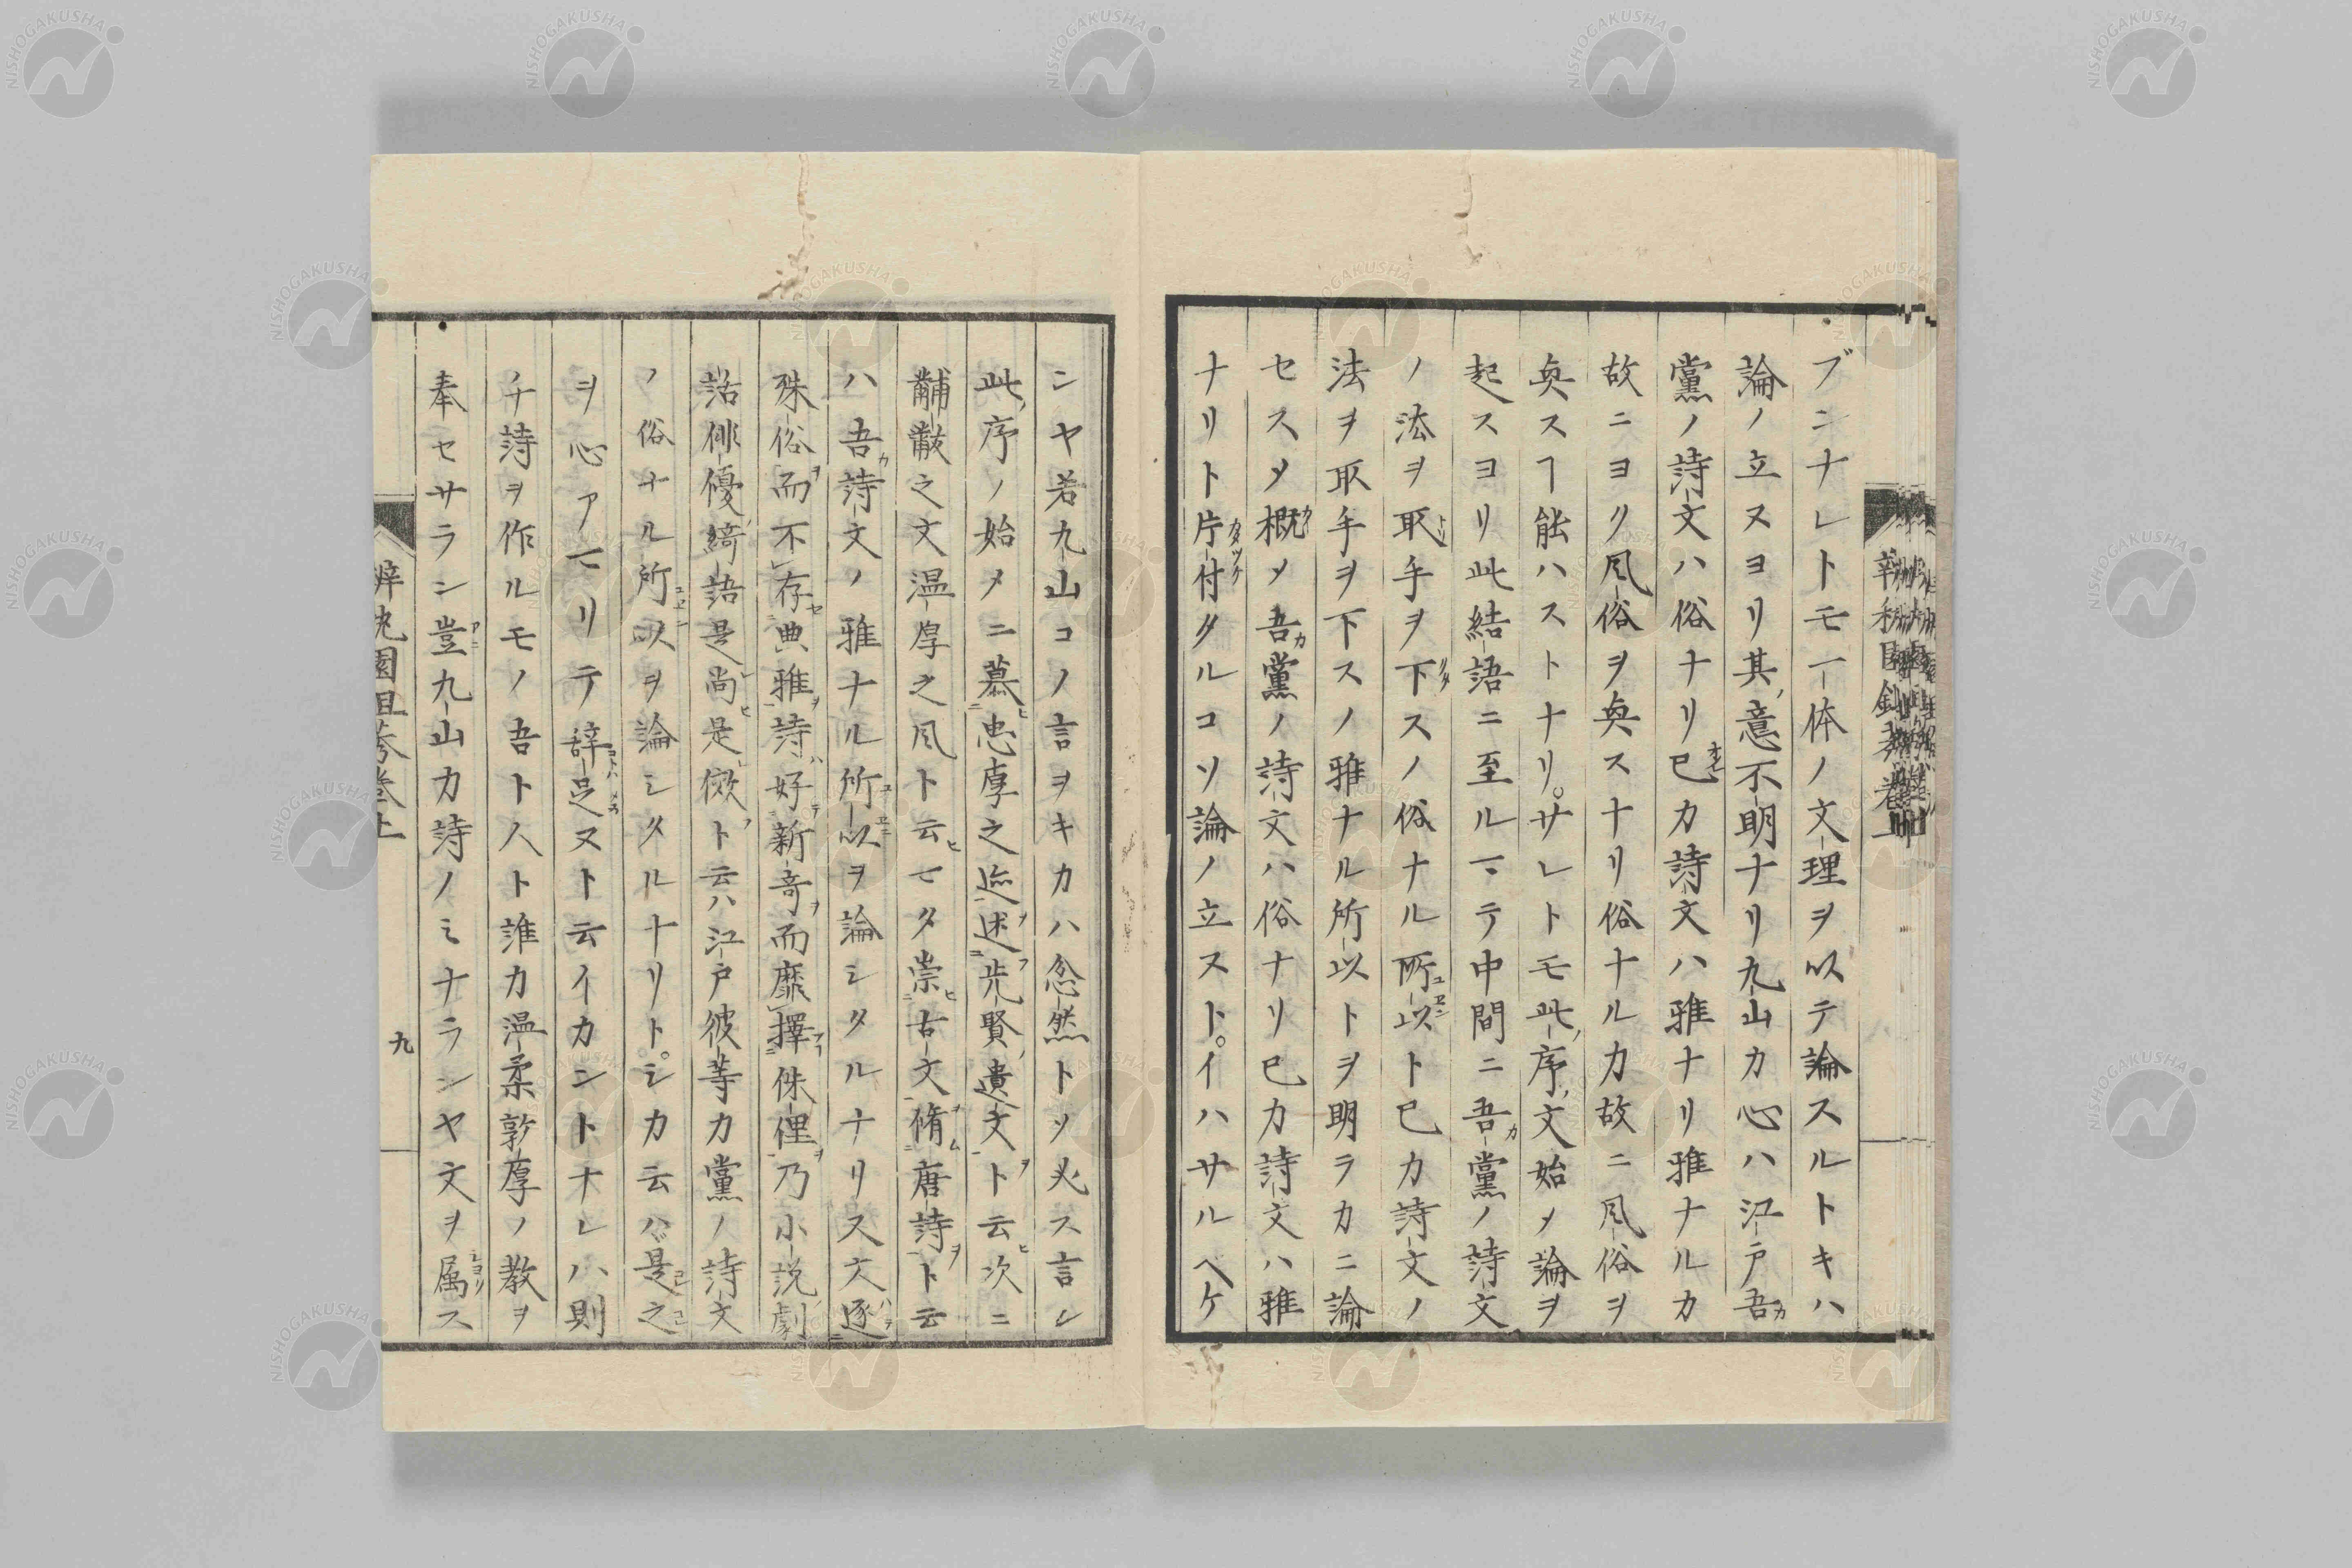 ブンナレトモ一体ノ文理ヲ以テ論スルトキハ
論ノ立ヌヨリ其意不明ナリ九山カ心ハ江戸吾カ
黨ノ詩文ハ俗ナリ已カ詩文ハ雅ナリ雅ナルカ
故ニヨク風俗ヲ奐ス十リ俗十ルカ故ニ風俗ヲ
奐スヿ能ハストナリ。サレトモ此序文始メ論ヲ
起スヨリ此結語ニ至ルマテ中間ニ吾カ黨ノ詩文
ノ法ヲ取手ヲ下スノ俗ナル所以ト已カ詩文ノ
法ヲ取手ヲ下スノ雅ナル所以トヲ明ラカニ論
セスメ概メ吾カ黨ノ詩文ハ俗ナリ已カ詩文ハ雅
ナリト片付タルコソ論ノ立ストイハサルヘケ
ンヤ若九山コノ言ヲキカハ忿然トソ必ス言ン
此序ノ始メニ慕忠厚之迹述先賢遺文ト云次ニ
黼黻之文温厚之風ト云マタ崇古文脩唐詩ト云
ハ吾カ詩文ノ雅ナル所以ヲ論シタルナリス文逐
殊俗而不存典雅詩好新奇而靡擇侏俚乃小説劇
話俳優綺語是尚是傚ト云ハ江戸彼等カ黨ノ詩文
ノ俗ナル所以ヲ論シタル十リト。シカ云ハ是之
ヲ心アマリテ辞足ヌト云イカントナレハ則
チ詩ヲ作ルモノ吾ト人ト誰カ温柔敦厚ノ教ヲ
奉セサラン豈九山カ詩ノミナランヤ文ヲ属ス
九